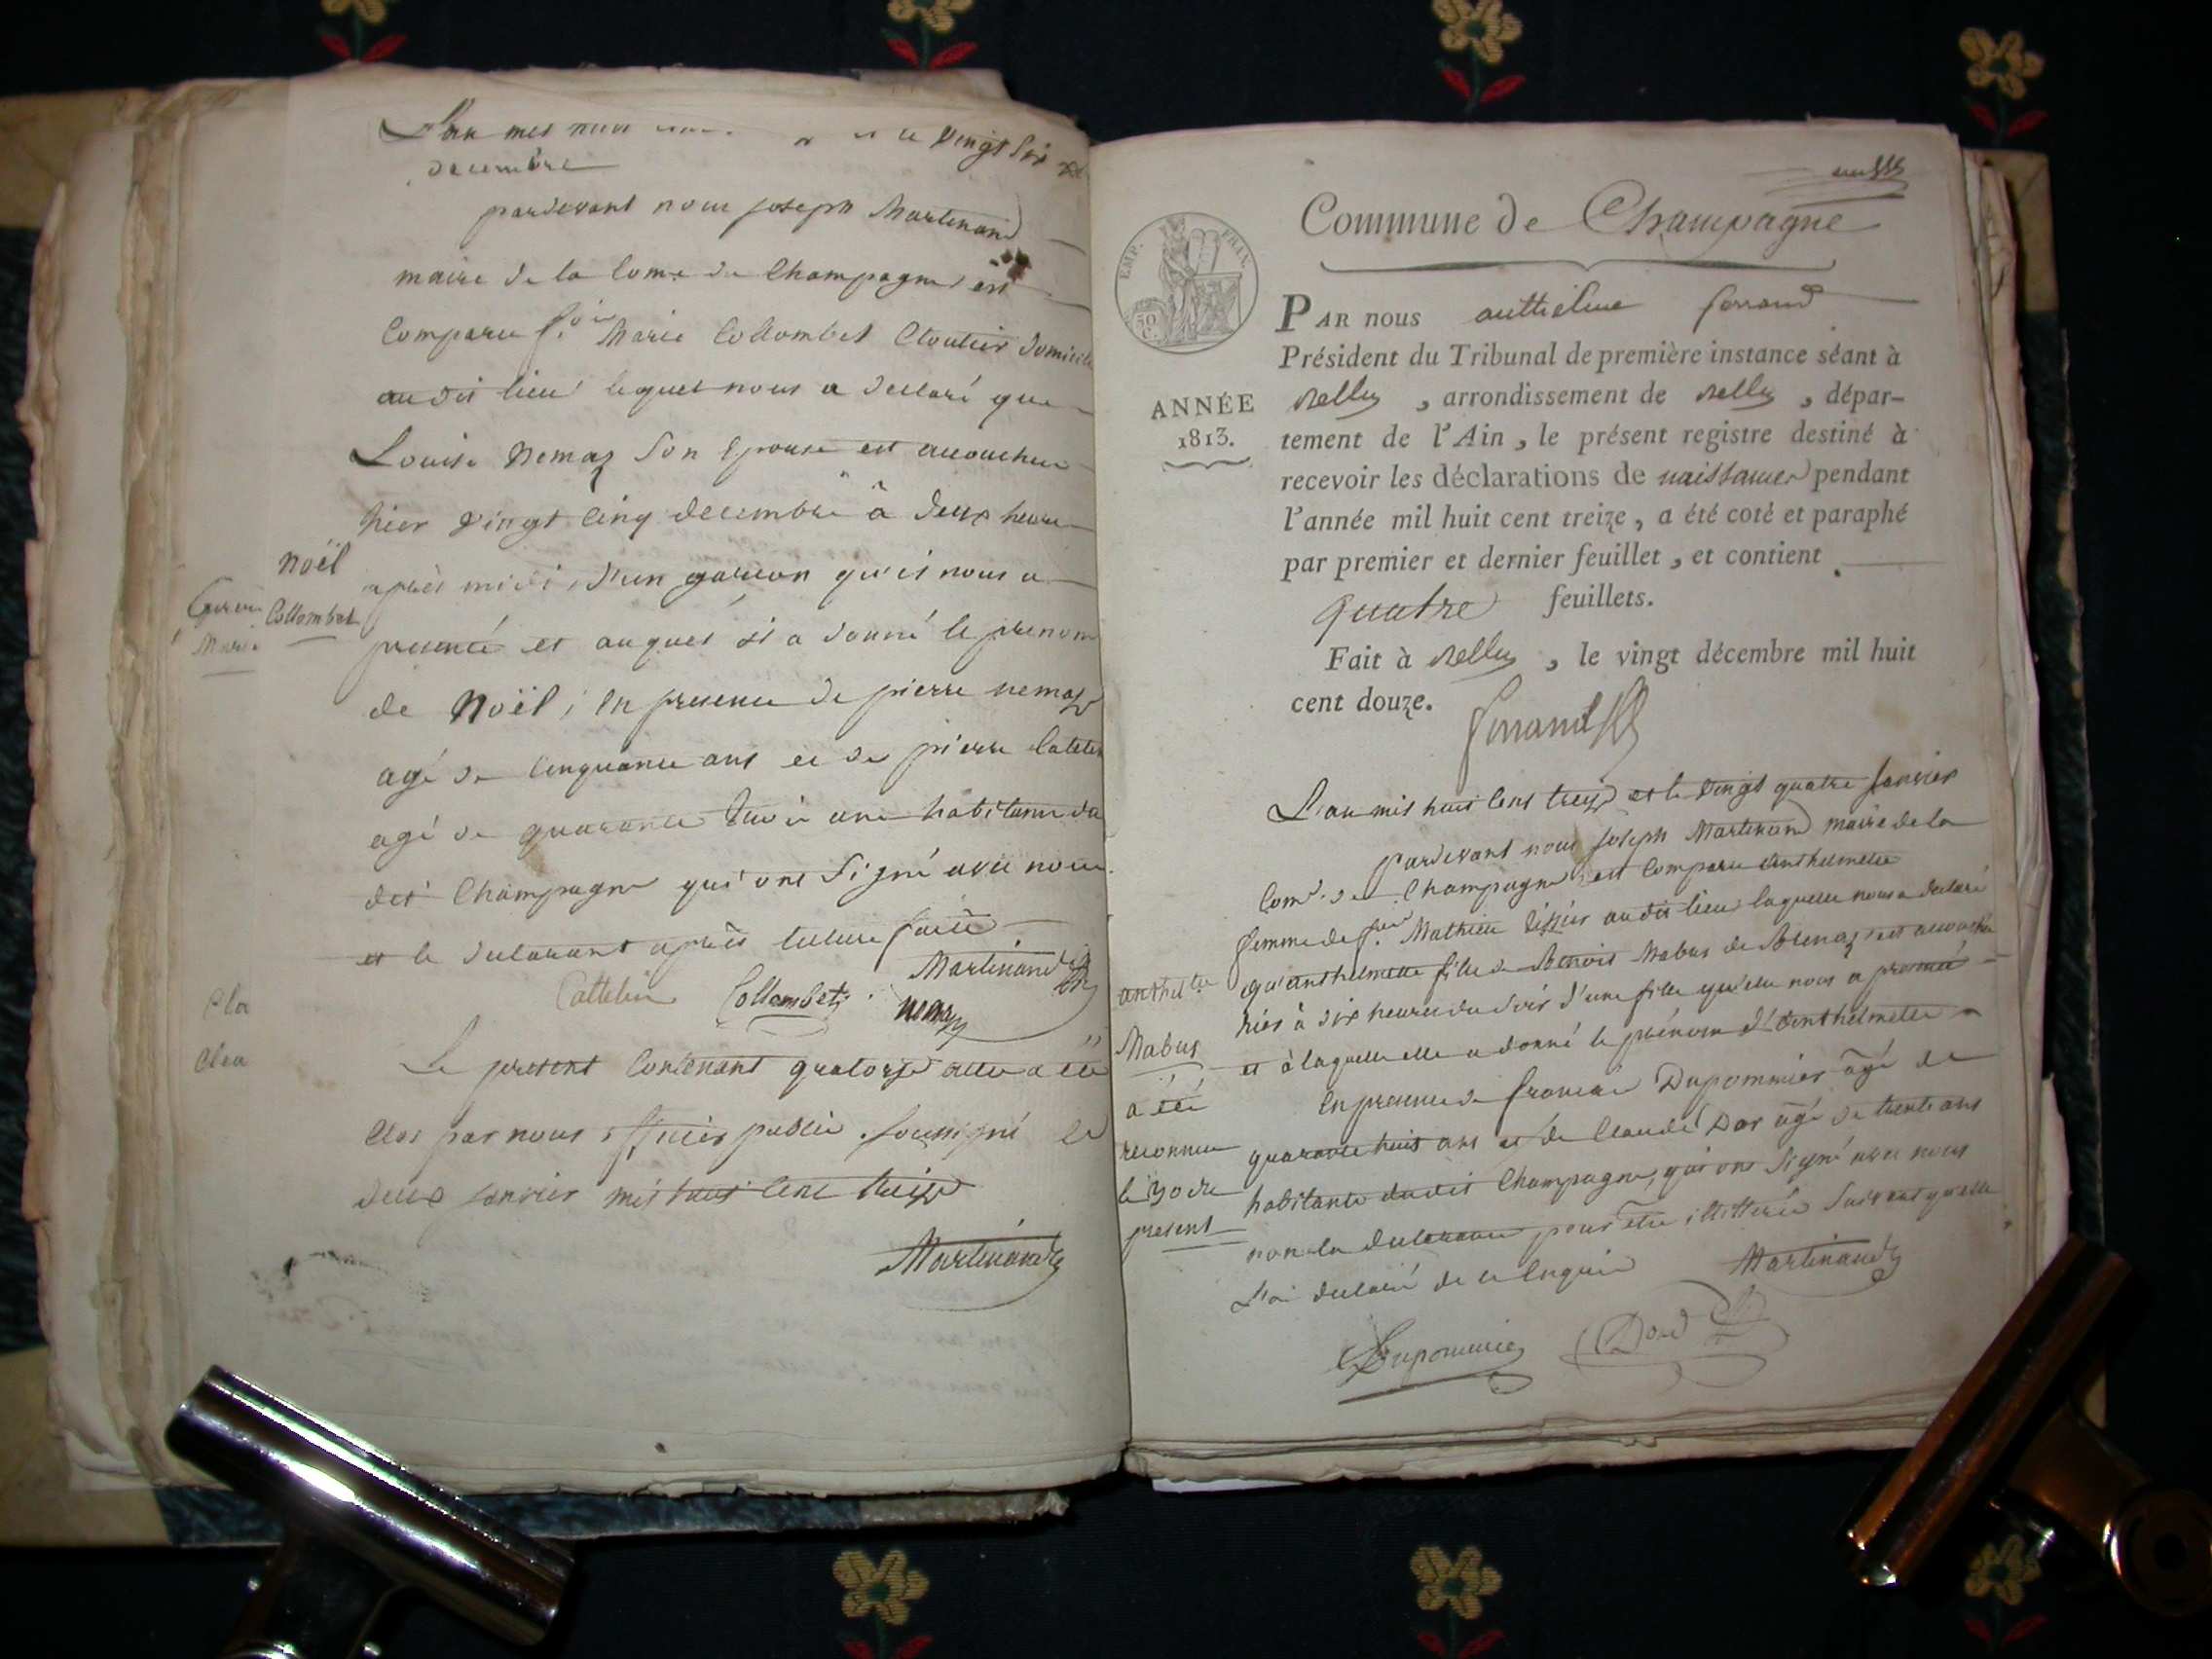 L'an mil huit ce vingt six
decembre
pardevant nous joseph Martinand
maire de la Com.e de Champagne est
Comparu s.r Marie Collombet Cloutier domicilié
au dit lieu lequel nous a declaré que
Louise Nemoz Son Epouse est accouchée
hier vingt Cinq decembre à deux heures
après midi, d'un garcon qu'il nous a
Noël
Collombet
presenté et auquel il a donné le prenom
de Noël, en presence de pierre nemoz
agé de Cinquante ans et de pierre Cattelin
agé de quarante trois ans habitans du
dit Champagne qui ont Signé avec nous
et le declarant après lecture faite
Martinand
Cattelin Collombet nemoz
Le present Contenant quatorze actes a été
Clos par nous officier public soussigné le
deux janvier mil huit Cent treize
Martinand
Commune de Champagne
EMP. FRAN.
50 C.
PAR nous anthelme ferrand
Président du Tribunal de première instance séant à
Belley, arrondissement de Belley, dépar-
ANNÉE
1813.
tement de l'Ain, le présent registre destiné à
recevoir les déclarations de naissances pendant
l'année mil huit cent treize, a été coté et paraphé
par premier et dernier feuillet, et contient
quatre feuillets.
Fait à Belley, le vingt décembre mil huit
cent douze.
ferrand
L'an mil huit Cent treize et le vingt quatre janvier
pardevant nous joseph Martinand maire de la
Com.e de Champagne est Comparu Anthelmette
femme de s.r Mathieu Tissier au dit lieu laquelle nous a declaré
qu'anthelmette fille de Benoit Mabus de est accouchée
hier à six heures du soir d'une fille qu'elle nous a presenté
et à laquelle elle a donné le prénom d'Anthelmette
En presence de francois Dupommier âgé de
quarante huit ans et de Claude Dor âgé de trente ans
habitants dudit Champagne, qui ont Signé avec nous
non la declarante pour être illitterée Suivant qu'elle
l'a declaré de ce Enquise
Mabus
a été
reconnue
le 30 du
present
Martinand
Dupommier Dord